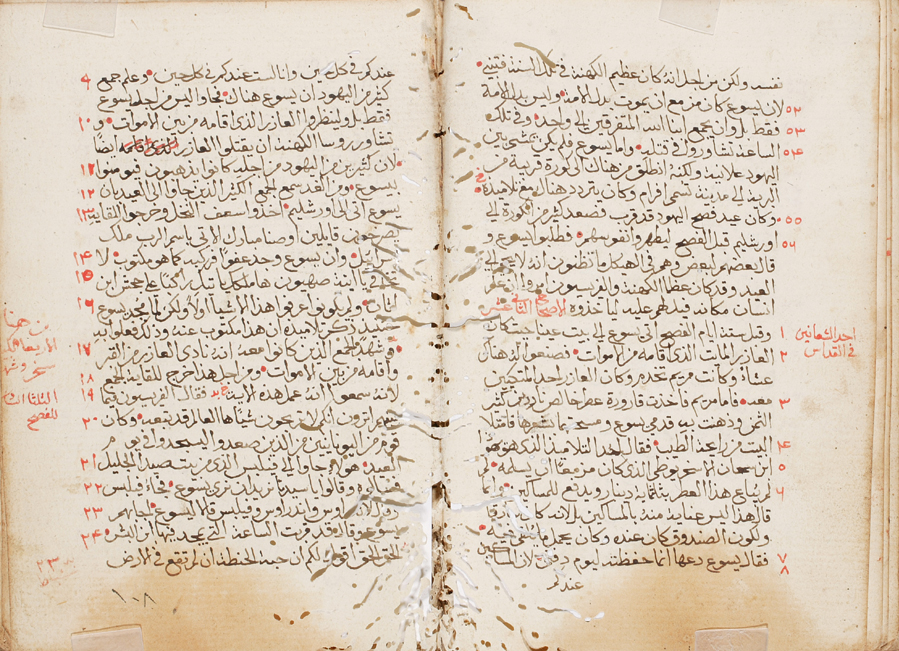 نفسه ولكن من اجل انه كان عظيم الكهنة في تلك السنة فتنبى
لان يسوع كان مزمع ان يموت بدل الامة وليس بدل الامة ٥٢
فقط بل وان يجمع ابنا الله المتفرقين الى واحد وفي تلك ٥٣
الساعة تشاوروا في قتله واما يسوع فلم يكن يمشي بين ٥٤
اليهود علانية ولكنه انطلق من هناك الى كورة قريبة من
البرية الى مدينة تسمى افرام وكان يتردد هناك مع تلاميذه
وكان عيد فصح اليهود قد قرب فصعد كثير من الكورة الى ٥٥
اورشليم قبل الفصح ليطهروا نفوسهم فطلبوا يسوع و ٥٦
قال بعضهم لبعض وهم في الهيكل ما تظنون انه لا يجي الى
العيد وقد كان عظما الكهنة والفريسيون امروا ان علم
انسان مكانه فيدلهم عليه ليأخذوه الاصحاح الثاني عشر
وقبل ستة ايام الفصح اتى يسوع الى بيت عنيا حيث كان ١
احد الشعانين
في القداس
العازر المات الذي اقامه من الاموات فصنعوا له هناك ٢
عشاء وكانت مريم تخدم وكان العازر احد المتكين
معه فاما مريم فأخذت قارورة عطر خالص ناردين كثير ٣
الثمن ودهنت به قدمي يسوع ومسحتهما بشعرها فامتلأ
البيت من رايحة الطيب فقال احد التلاميذ الذي هو يهوذا ٤
ابن سمعان الاسخريوطي الذي كان مزمعا ان يسلمه لم ٥
لم يباع هذا العطر بثلثماية دينار ويدفع للمساكين وانما ٦
قال هذا ليس عناية منه بالمساكين بل لانه كان سارقا
ولكون الصندوق كان عنده وكان يحمل ما يلقى فيه
فقال يسوع دعها انما حفظته ليوم دفني لان المساكين ٧
٨
عندكم
عندكم في كل حين وانا لست عندكم في كل حين وعلم جمع ٩
كثير من اليهود ان يسوع هناك فجاوا ليس من اجل يسوع
فقط بل ولينظروا العازر الذي اقامه من بين الاموات و ١٠
تشاور روسا الكهنة ان يقتلوا العازر ايضا
لان كثيرين من اليهود من اجله كانوا يذهبون فيومنوا ١١
بيسوع ومن الغد سمع الجمع الكثير الذين جاوا الى العيد بان ١٢
يسوع اتى الى اورشليم اخذوا سعف النخل وخرجوا للقايه ١٣
يصرخون قايلين اوصنا مبارك الاتي باسم الرب ملك
اسرائيل وان يسوع وجد عفوا فركبه كما هو مكتوب لا ١٤
تخافي يا ابنة صهيون ها ملكك ياتيك راكبا على جحش ابن ١٥
اتان ولم يكونوا عرفوا هذا الاشيا اولا ولكن لما تمجد يسوع ١٦
حينيذ ذكر تلاميذه ان هذا مكتوب عنه وذلك فعلوا به
وشهد الجمع الذين كانوا معه انه نادى العازر من القبر ١٧
واقامه من بين الاموات ومن اجل هذا خرج للقايه الجمع ١٨
لانهم سمعوا انه عمل هذه الاية فقال الفريسيون فيما ١٩
بينهم اترون انكم لا تربحون شيا ها العالم قد تبعه وكان ٢٠
قوم من اليونانيين من الذين صعدوا ليسجدوا في يوم
العيد هولاء جاوا الى فيلبس الذي من بيت صيدا الجليل ٢١
فسالوه وقالوا يا سيد نريد ان نرى يسوع فجاء فيلبس ٢٢
وقال لاندراوس واندراوس وفيلبس قالا ليسوع اجابهم ٢٣
يسوع وقال قد قربت الساعة التي يمجد فيها ابن البشر ٢٤
الحق الحق اقول لكم ان حبة الحنطة ان لم تقع في الارض
الثلثا
للفصح
١٠٨